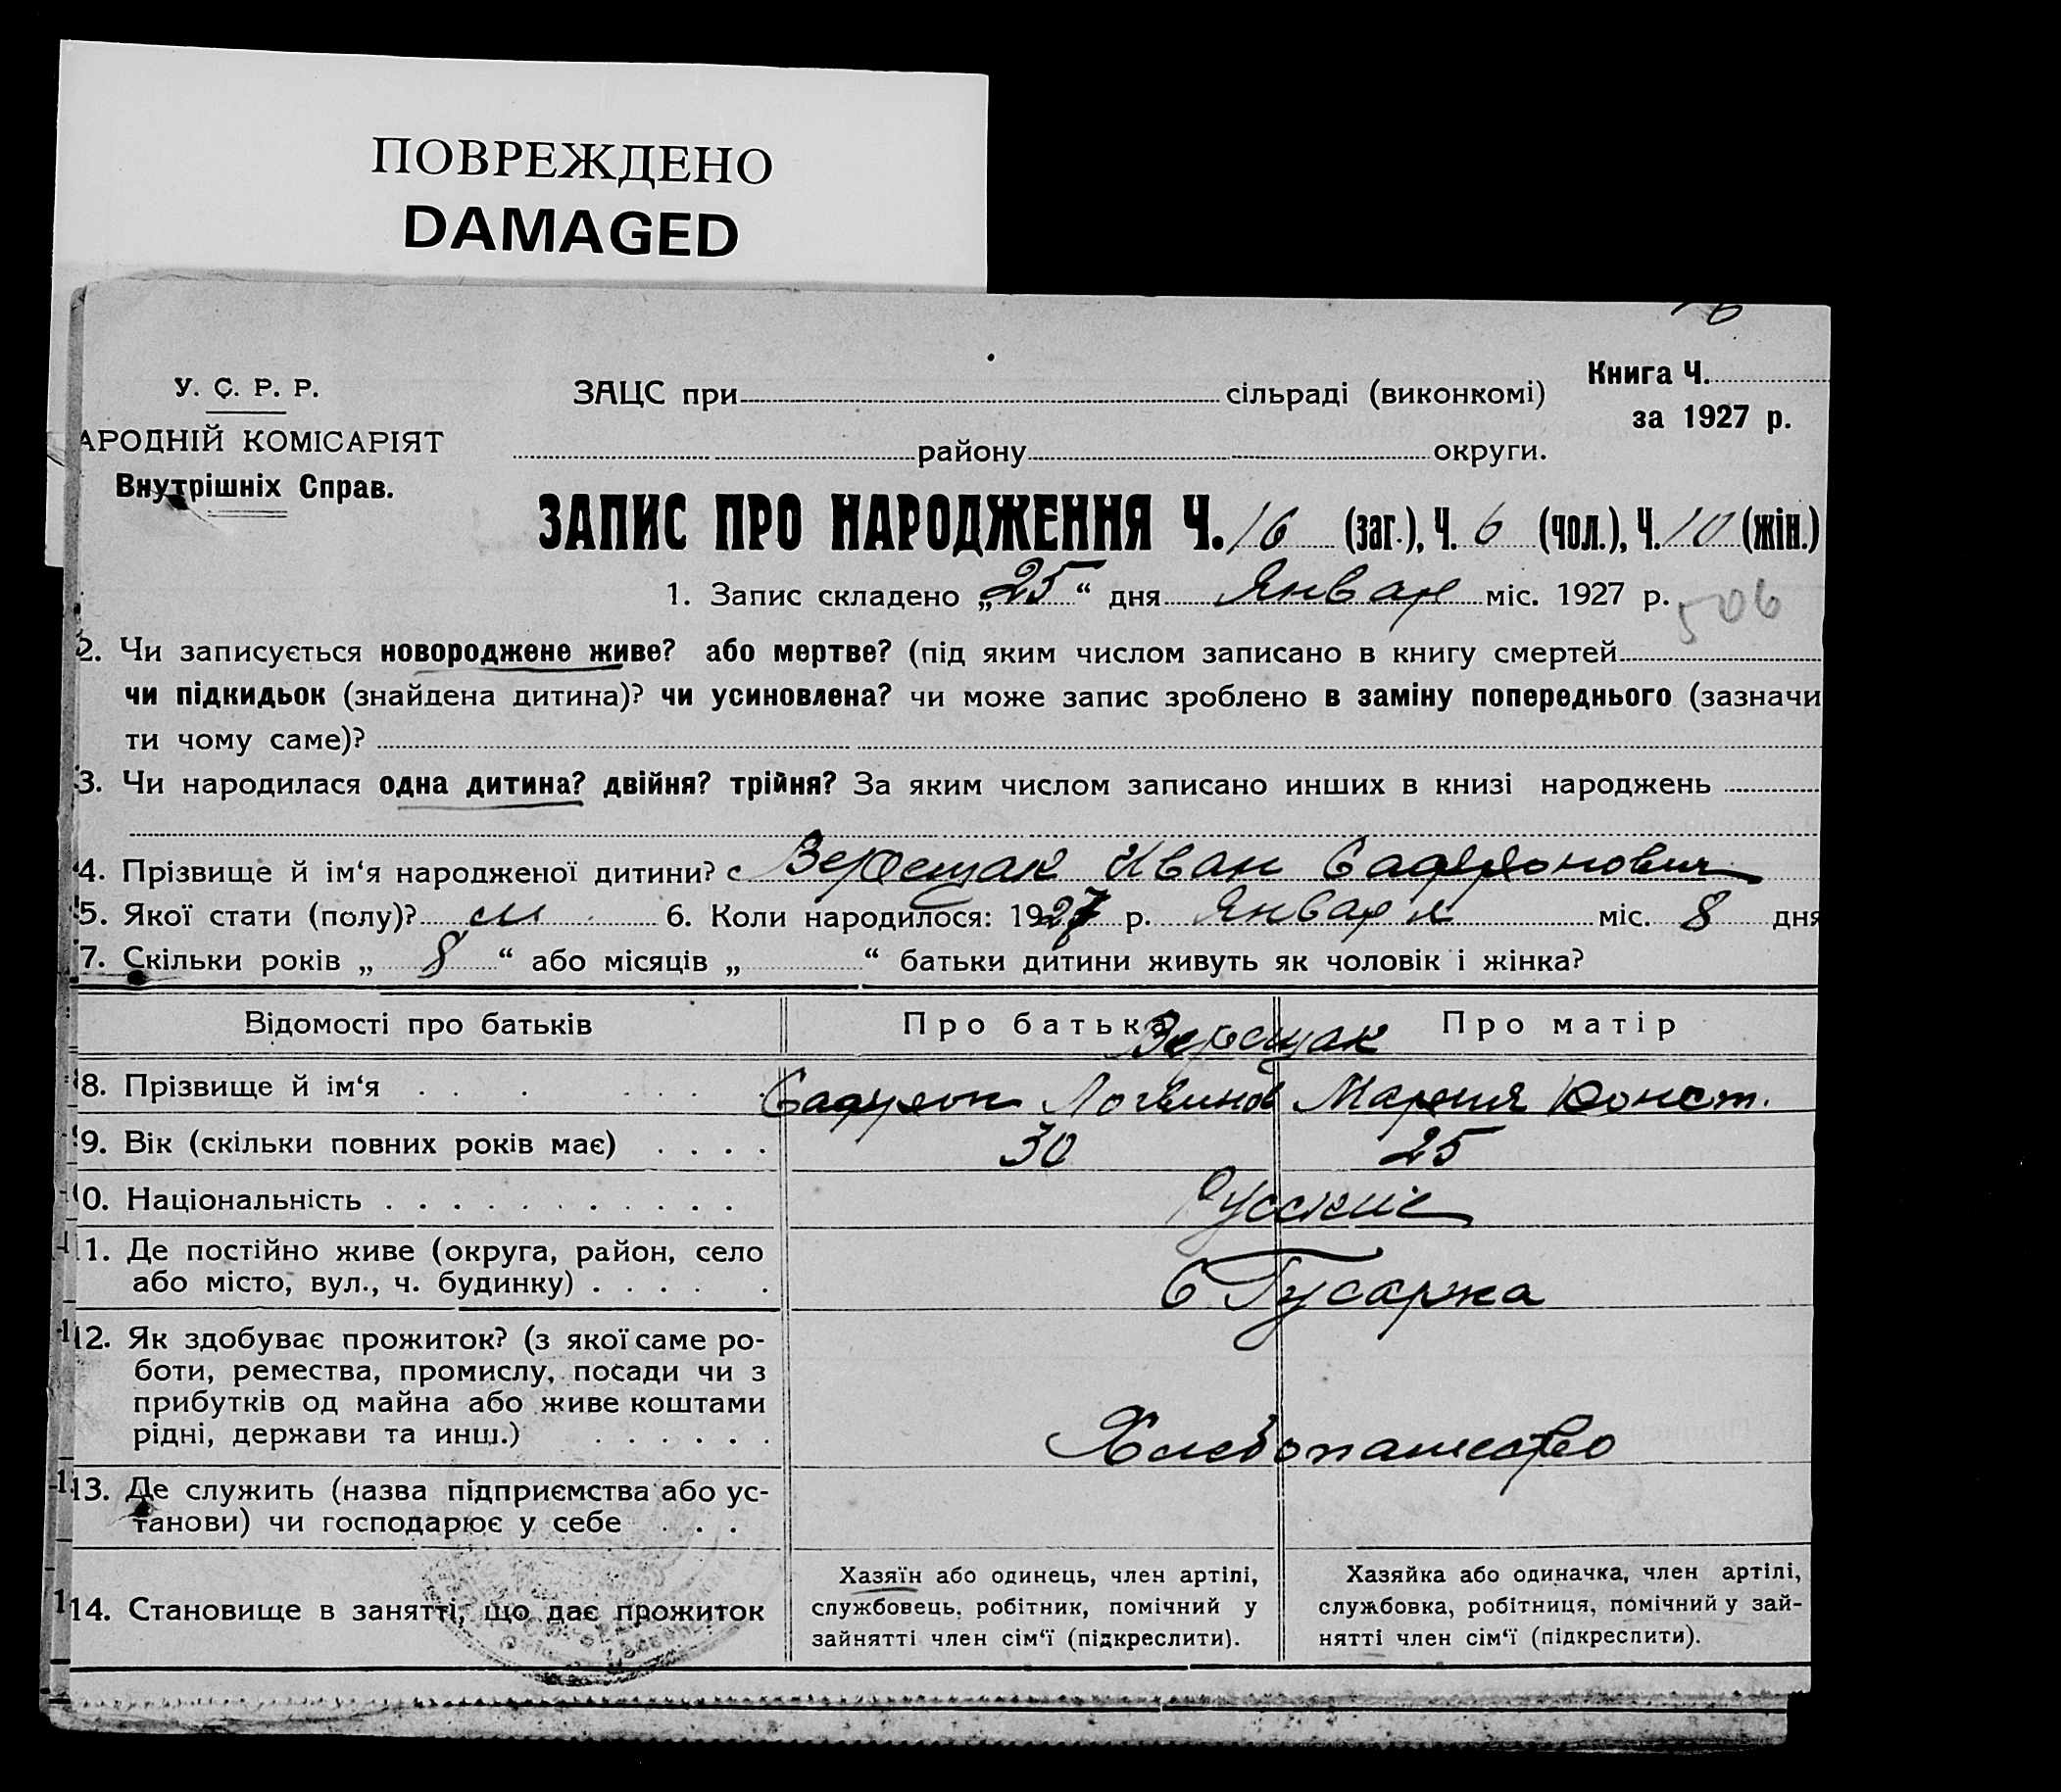 ПОВРЕЖДЕНО
DAMAGED
У. С. Р. Р.
АРОДНІЙ КОМІСАРІЯТ
Внутрішніх Справ.
ЗАЦС при сільраді (виконкомі)
району округи.
Книга Ч.
за 1927 р.
ЗАПИС ПРО НАРОДЖЕННЯ Ч. 16 (заг.), Ч. 6 (чол.), Ч. 10 (жін.)
1. Запис складено „25“ дня Январ міс. 1927 р.
506
2. Чи записується новороджене живе? або мертве? (під яким числом записано в книгу смертей
чи підкидьок (знайдена дитина)? чи усиновлена? чи може запис зроблено в заміну попереднього (зазначи
ти чому саме)?
3. Чи народилася одна дитина? двійня? трійня? За яким числом записано инших в книзі народжень
4. Прізвище й ім‘я народженої дитини? Верещак Иван Сафронович
5. Якої стати (полу)? м 6. Коли народилося: 1927 р. Января міс. 8 дня
7. Скільки років „ 8 “ або місяців „ “ батьки дитини живуть як чоловік і жінка?
Відомості про батьків Про батька Про матір
Верещак
8. Прізвище й ім‘я Сафрон Логвинов Мария Конст.
9. Вік (скільки повних років має) 30 25
0. Національність Русские
11. Де постійно живе (округа, район, село
або місто, вул., ч. будинку) С Гусарка
12. Як здобуває прожиток? (з якої саме ро-
боти, ремества, промислу, посади чи з
прибутків од майна або живе коштами
рідні, держави та инш.) Хлебопашество
13. Де служить (назва підприємства або ус-
танови) чи господарює у себе
14. Становище в занятті, що дає прожиток
Хазяїн або одинець, член артілі,
службовець, робітник, помічний у
зайнятті член сім‘ї (підкреслити).
Хазяйка або одиначка, член артілі,
службовка, робітниця, помічний у зай-
нятті член сім‘ї (підкреслити).